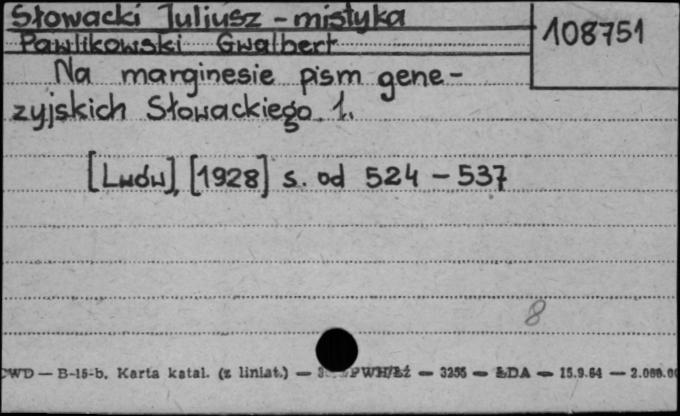 Słowacki Juliusz - mistyka
108751
Pawlikowski Gwalbert
Na marginesie pism gene-
zyjskich Słowackiego. 1.
[Lwów], [1928] s. od 524 - 537
8
CWD — B-15-b. Karta katal. (z liniat.) — PWH/Łź — 3255 — ŁDA — 15.9.64 — 2.000.00